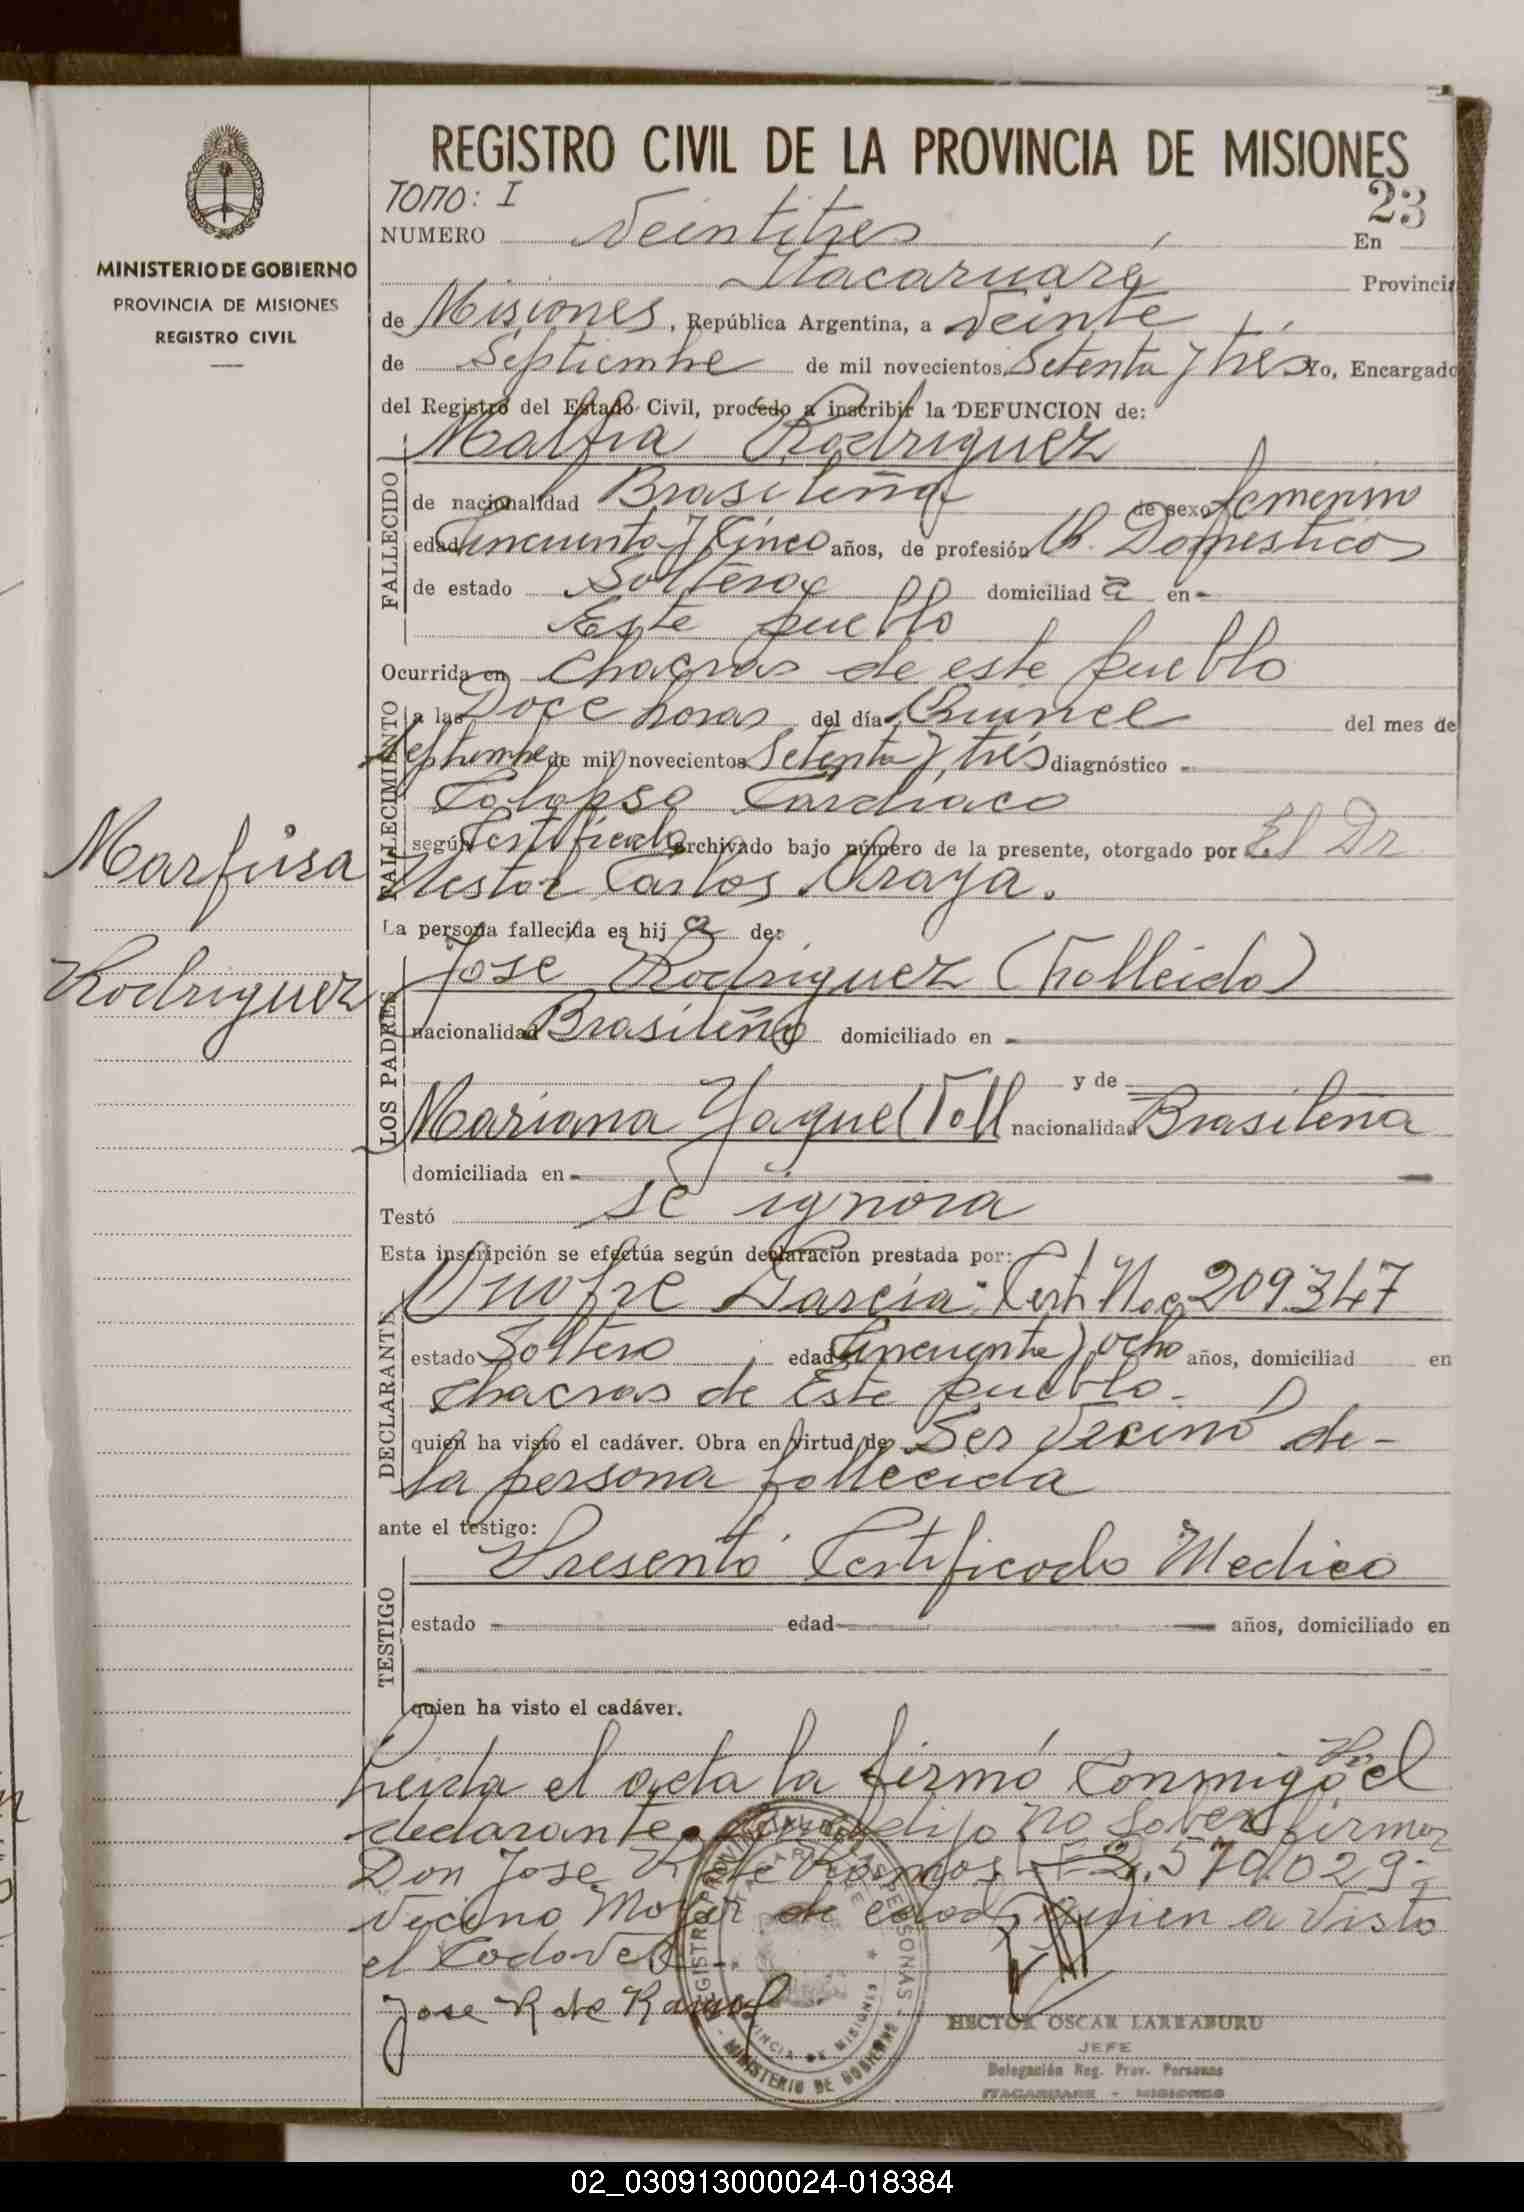 REGISTRO CIVIL DE LA PROVINCIA DE MISIONES
TOMO: I
23
NUMERO Veintitres En
Itacaruaré Provincia
de Misiones, República Argentina, a Veinte
de Septiembre de mil novecientos Setenta y tres Yo, Encargado
del Registro del Estado Civil, procedo a inscribir la DEFUNCION de:
Malfia Rodriguez
FALLECIDO
de nacionalidad Brasileña de sexo femenino
edad Cincuenta y Cinco años, de profesión Q. Domesticos
de estado Soltera domiciliad a en
Este pueblo
Ocurrida en chacras de este pueblo
FALLECIMIENTO
a las Doce horas del día Quince del mes de
Septiembre de mil novecientos Setenta y tres diagnóstico
Colapso Cardiaco
según Certificado archivado bajo número de la presente, otorgado por El Dr
Nestor Carlos Araya.
La persona fallecida es hij a de:
LOS PADRES
Jose Rodriguez (Falleido)
nacionalidad Brasileño domiciliado en
y de
Mariana Yaque (Fall nacionalidad Brasileña
domiciliada en
Testó se ignora
Esta inscripción se efectúa según declaración prestada por:
DECLARANTE
Onofre Garcia: Cert. Nac 209347
estado Soltero edad Cincuenta y ocho años, domiciliad en
chacras de Este pueblo.
quien ha visto el cadáver. Obra en virtud de Ser Vecino de
la persona fallecida
ante el testigo:
TESTIGO
Presentó Certificado Medico
estado edad años, domiciliado en
quien ha visto el cadáver.
Leida el acta la firmó Conmigo el
declarante dijo no saber firmar
Don Jose R de Ramos 2.570.029
Vecino Mayor de edad quien a visto
el Cadaver
Jose R de Ramos
REGISTRO PROVINCIAL DE LAS PERSONAS
ITACARUARE
PROVINCIA DE MISIONES
MINISTERIO DE GOBIERNO
HECTOR OSCAR LARRABURU
JEFE
Delegación Reg. Prov. Personas
ITACARUARE - MISIONES
MINISTERIO DE GOBIERNO
PROVINCIA DE MISIONES
REGISTRO CIVIL
Marfisa
Rodriguez
02_030913000024-018384